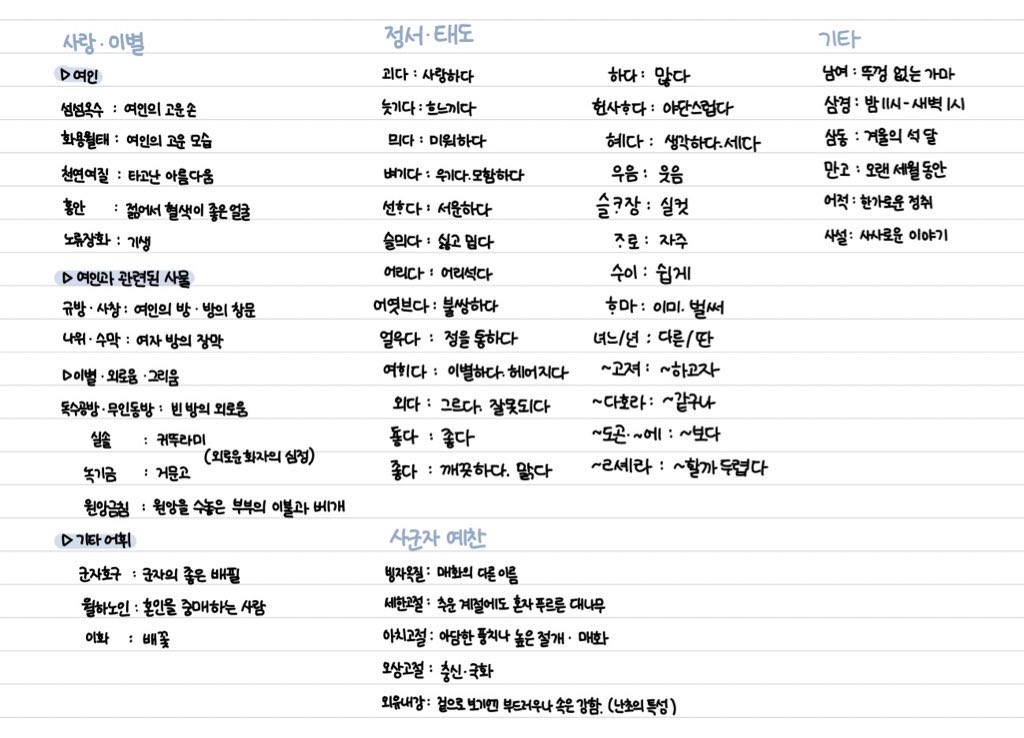 사랑·이별
▷여인
섬섬옥수 : 여인의 고운 손
화용월태 : 여인의 고운 모습
천연여질 : 타고난 아름다움
홍안 : 젊어서 혈색이 좋은 얼굴
노류장화 : 기생
▷여인과 관련된 사물
규방·사창 : 여인의 방·방의 창문
나위·수막 : 여자 방의 장막
▷이별·외로움·그리움
독수공방·무인동방 : 빈 방의 외로움
실솔 : 귀뚜라미
(외로운 화자의 심정)
녹기금 : 거문고
원앙금침 : 원앙을 수놓은 부부의 이불과 베개
▷기타 어휘
군자호구 : 군자의 좋은 배필
월하노인 : 혼인을 중매하는 사람
이화 : 배꽃
정서·태도
괴다 : 사랑하다
늣기다 : 흐느끼다
믜다 : 미워하다
벼기다 : 우기다. 모함하다
선ᄒᆞ다 : 서운하다
슬믜다 : 싫고 밉다
어리다 : 어리석다
어엿브다 : 불쌍하다
얼우다 : 정을 통하다
여희다 : 이별하다. 헤어지다
외다 : 그르다. 잘못되다
둏다 : 좋다
좋다 : 깨끗하다. 맑다
하다 : 많다
헌사ᄒᆞ다 : 야단스럽다
혜다 : 생각하다. 세다
우음 : 웃음
슬ᄏᆞ장 : 실컷
ᄌᆞ로 : 자주
수이 : 쉽게
ᄒᆞ마 : 이미. 벌써
녀느/년 : 다른/딴
~고져 : ~하고자
~다호라 : ~같구나
~도곤·~에 : ~보다
~ㄹ셰라 : ~할까 두렵다
기타
남여 : 뚜껑 없는 가마
삼경 : 밤 11시-새벽 1시
삼동 : 겨울의 석 달
만고 : 오랜 세월 동안
어적 : 한가로운 정취
사설 : 사사로운 이야기
사군자 예찬
빙자옥질 : 매화의 다른 이름
세한고절 : 추운 계절에도 혼자 푸르른 대나무
아치고절 : 아담한 풍치나 높은 절개·매화
오상고절 : 충신·국화
외유내강 : 겉으로 보기엔 부드러우나 속은 강함. (난초의 특성)